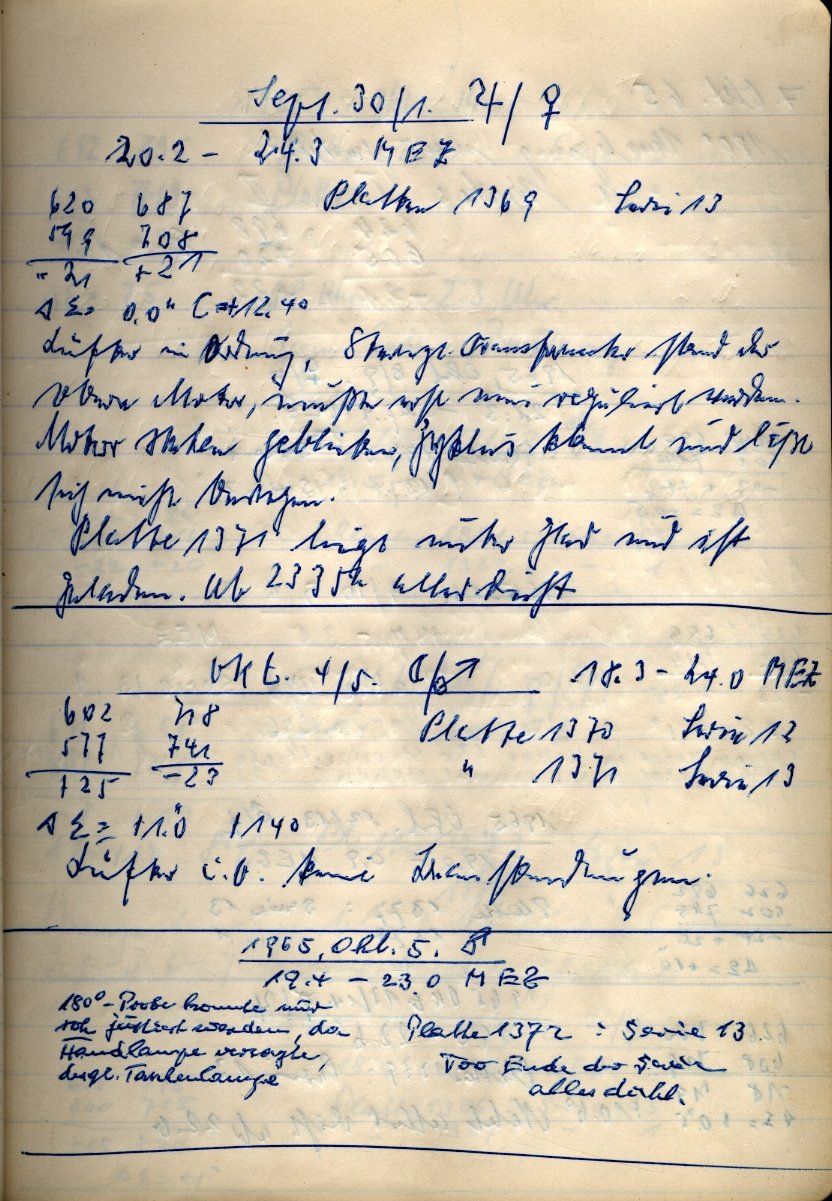 Sept. 30/1. ♃/♀
20.2 – 24.3 MEZ
620 687 Platten 1369 Serie 13
599 708
- 21 + 21
Δ Σ = 0.0" C = +12.40
Lüfter in Ordnung, stand der
obere Motor, mußte erst neu reguliert werden.
Motor stehen geblieben, Zyklus klemmt und läßt
sich nicht bewegen.
Platte 1371 liegt unter Glas und ist
geladen. Ab 2335h alles dicht
Okt. 4/5. ☾/♂ 18.3 – 24.0 MEZ
602 718 Platte 1370 Serie 12
577 741 " 1371 Serie 13
+25 -23
Δ Σ = +1.0" +1140
Lüfter i.O. keine
1965, Okt. 5.
19.4 – 23.0 MEZ
180°-Probe konnte nur
roh justiert werden, da Platte 1372 : Serie 13
Handlampe versagte, Vor Ende der Serie
desgl. Taschenlampe alles dicht.